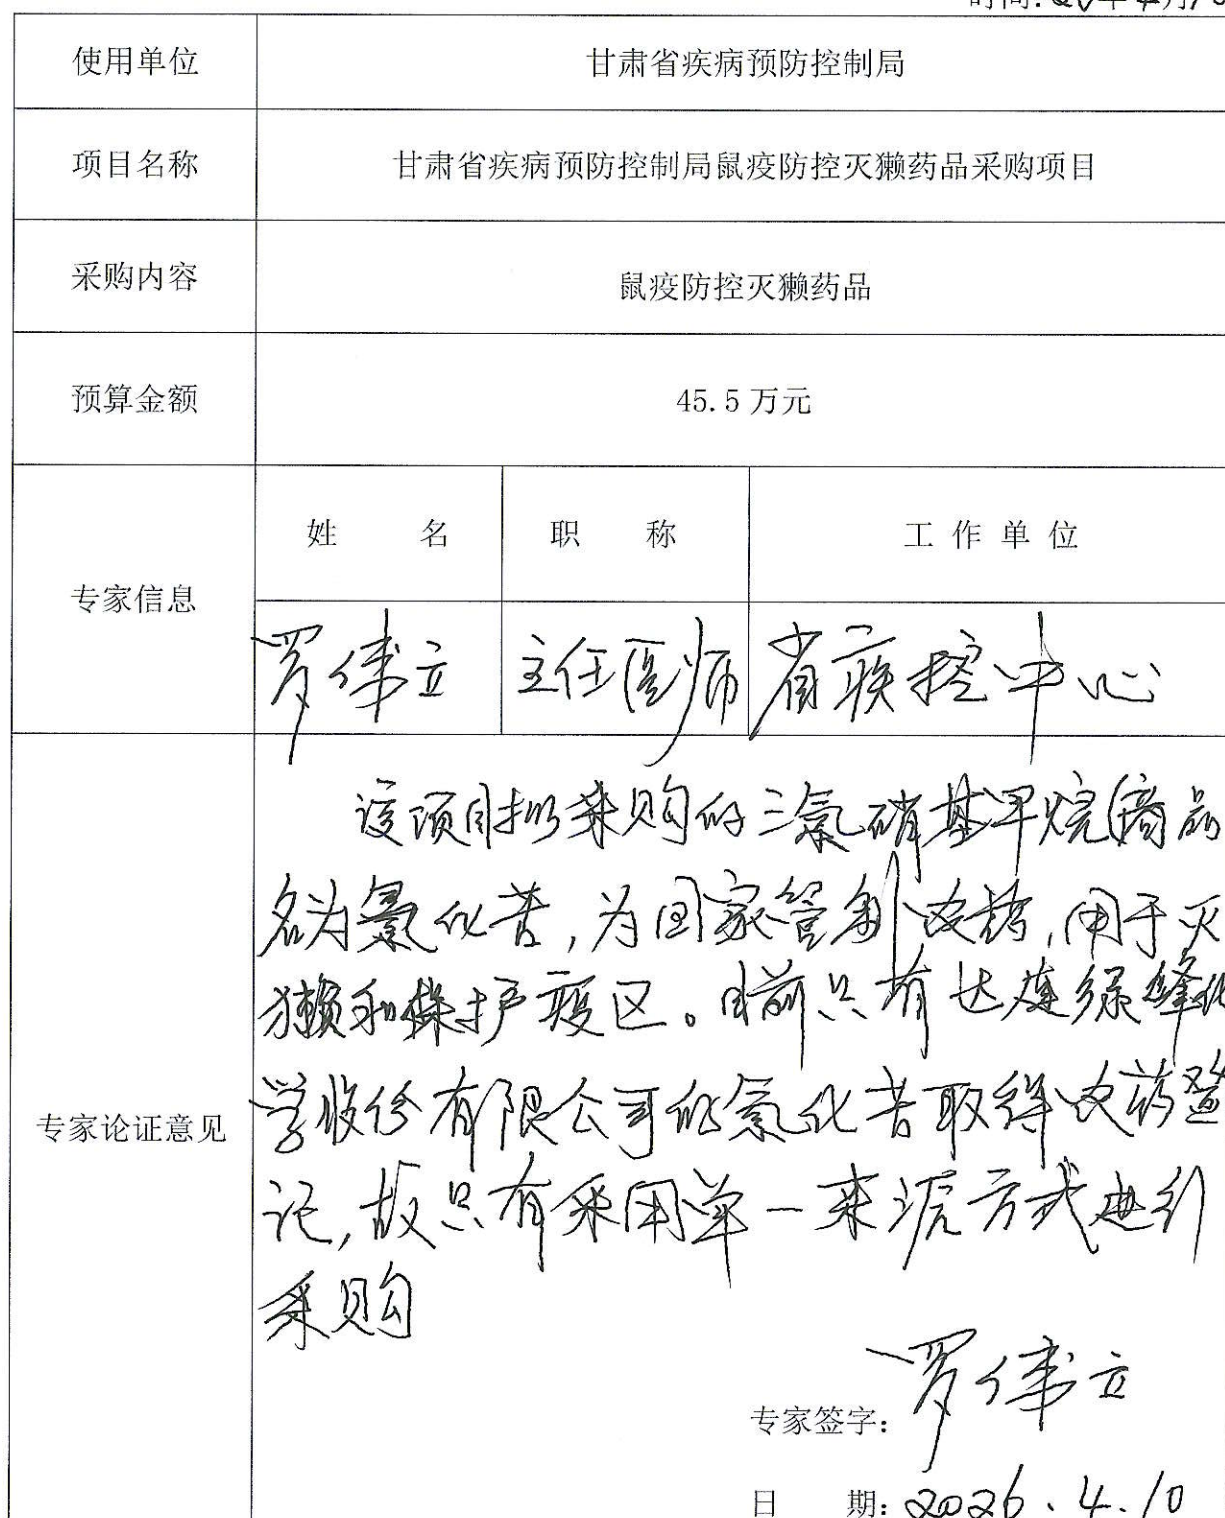 使用单位 甘肃省疾病预防控制局
项目名称 甘肃省疾病预防控制局鼠疫防控灭獭药品采购项目
采购内容 鼠疫防控灭獭药品
预算金额 45.5万元
专家信息 姓 名 职 称 工作单位
罗伟立 主任医师 省疾控中心
专家论证意见
该项目拟采购的三氯硝基甲烷(商品
名为氯化苦,为国家管制农药,用于灭
獭和保护疫区。目前只有大连绿峰化
学股份有限公司的氯化苦取得农药登
记,故只有采用单一来源方式进行
采购
专家签字: 罗伟立
日 期: 2026.4.10